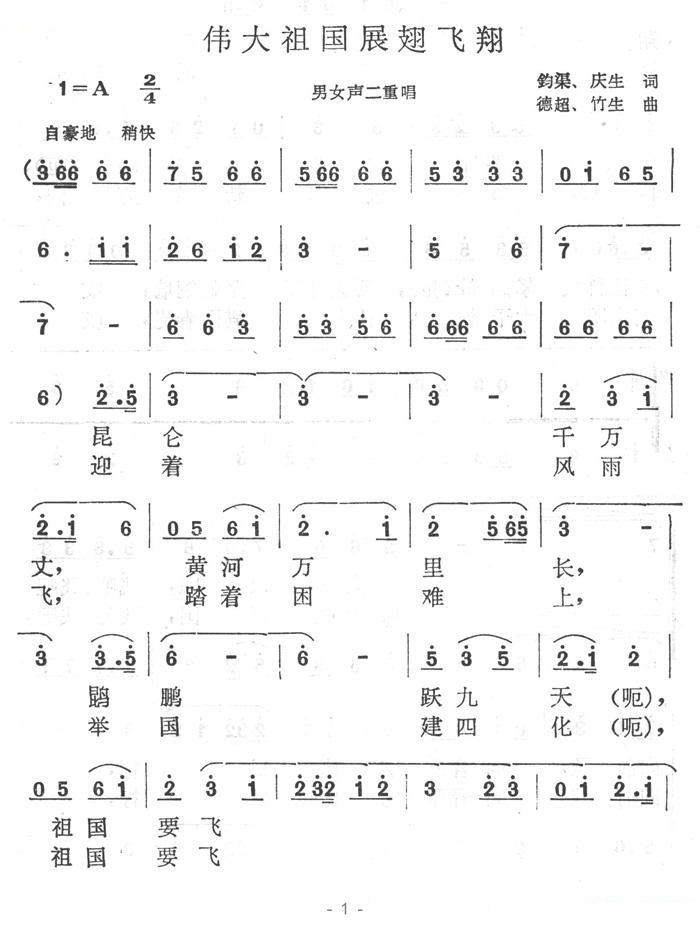 伟大祖国展翅飞翔
1=A 2/4 男女声二重唱 鈞渠、庆生 词
德超、竹生 曲
自豪地 稍快
(3 6 6 6 6 | 7 5 6 6 | 5 6 6 6 6 | 5 3 3 3 | 0 1 6 5 |
6 . 1 1 | 2 6 1 2 | 3 - | 5 6 | 7 - |
7 - | 6 6 3 | 5 3 5 6 | 6 6 6 6 6 | 6 6 6 6 |
6 ) 2 . 5 | 3 - | 3 - | 3 - | 2 3 1 |
昆 仑 千 万
迎 着 风 雨
2 . 1 6 | 0 5 6 1 | 2 . 1 | 2 5 6 5 | 3 - |
丈, 黄 河 万 里 长,
飞, 踏 着 困 难 上,
3 3 . 5 | 6 - | 6 - | 5 3 5 | 2 . 1 2 |
鹍 鹏 跃 九 天 (呃),
举 国 建 四 化 (呃),
0 5 6 1 | 2 3 1 | 2 3 2 1 2 | 3 2 3 | 0 1 2 . 1 |
祖 国 要 飞
祖 国 要 飞
- 1 -